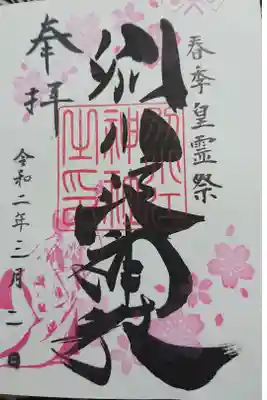 春季皇霊祭
別小江神社
奉拝
令和二年三月二日